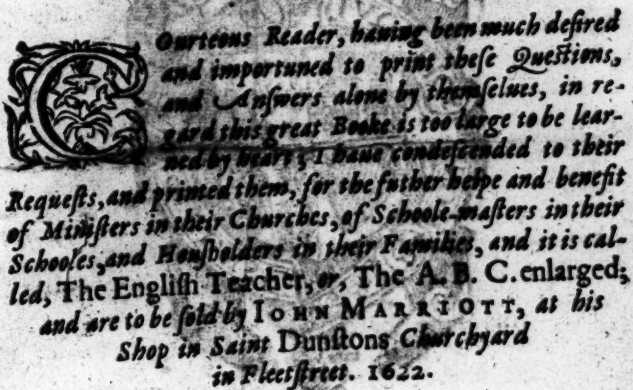 Courteous Reader, hauing been much deſired
and importuned to print theſe Queſtions,
and Anſwers alone by themſelues, in re-
gard this great Booke is too large to be lear-
ned by heart; I haue condeſcended to their
Requeſts, and printed them, for the futher helpe and benefit
of Miniſters in their Churches, of Schoole-maſters in their
Schooles, and Houſholders in their Families, and it is cal-
led, The Engliſh Teacher, or, The A. B. C. enlarged;
and are to be ſold by IOHN MARRIOTT, at his
Shop in Saint Dunſtons Churchyard
in Fleetſtreet. 1622.